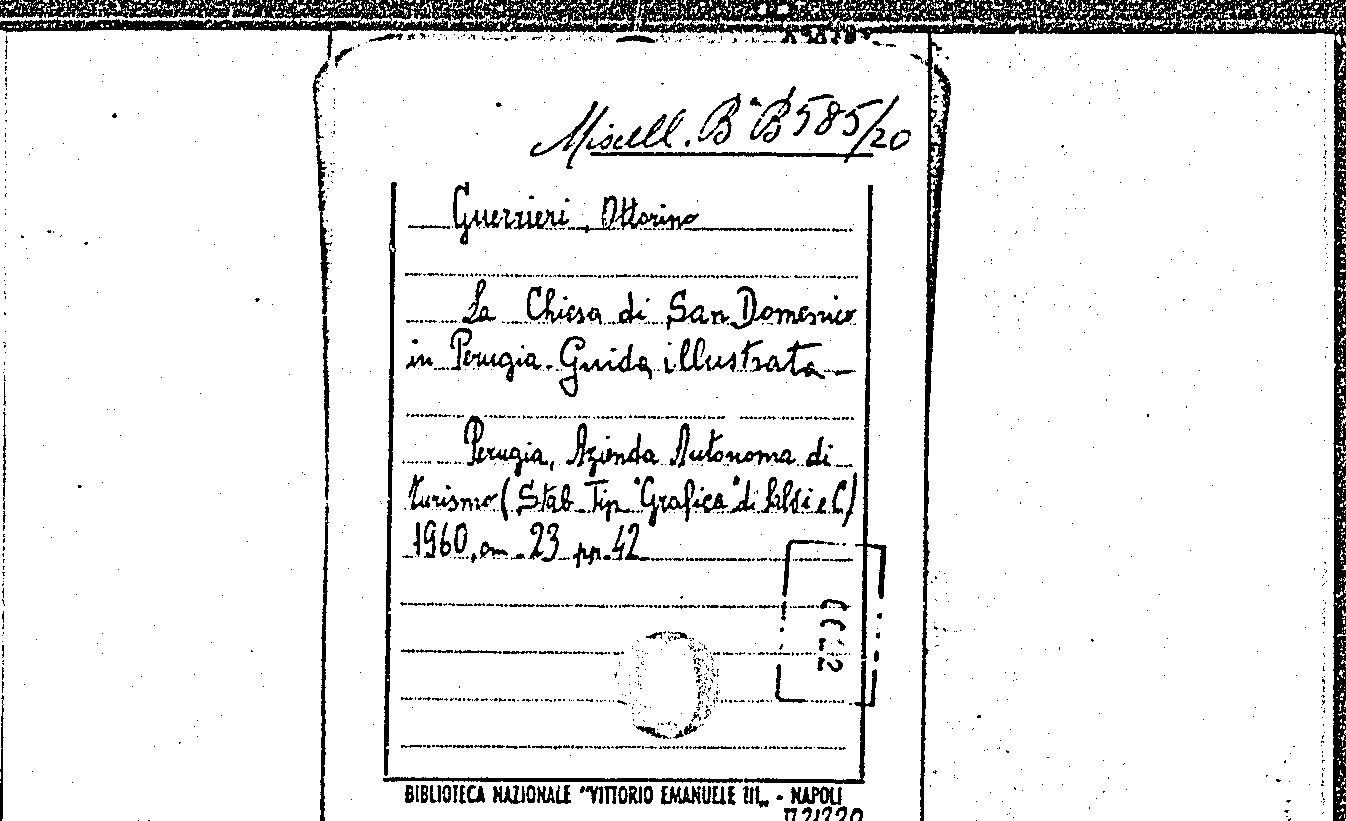 Miscell. Bª B 585/20
Guerrieri, Ottorino
La Chiesa di San Domenico
in Perugia. Guida illustrata —
Perugia, Azienda Autonoma di
turismo (Stab. Tip. "Grafica" di Salvi e C)
1960, cm. 23 pp. 42
BIBLIOTECA NAZIONALE "VITTORIO EMANUELE III„ - NAPOLI